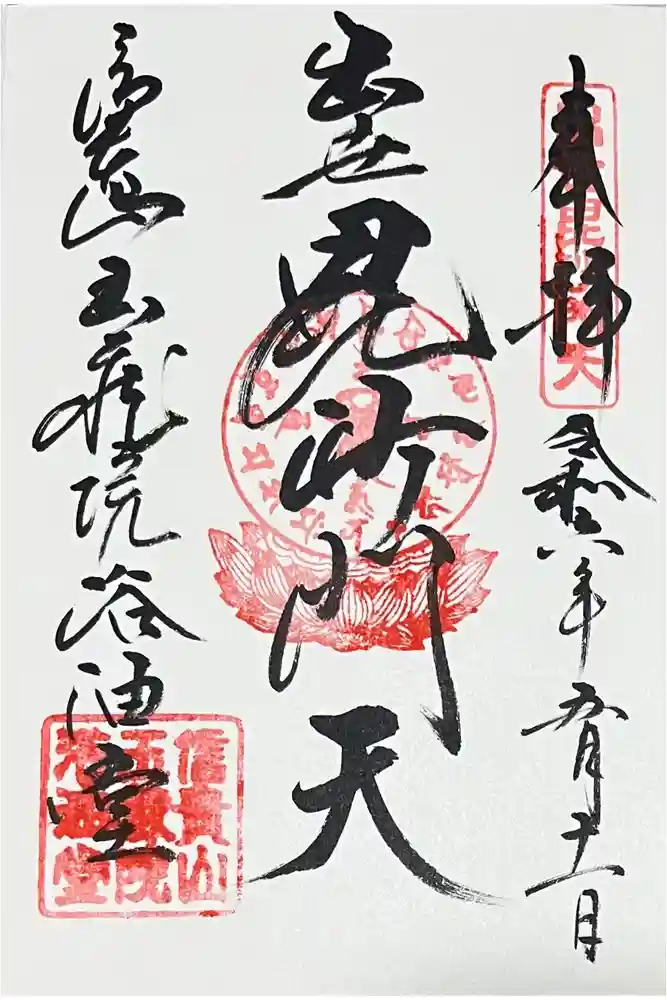 奉拝
令和六年五月十一日
出世毘沙門天
信貴山玉蔵院浴油堂
出世毘沙門天
信貴山
玉蔵院
浴油堂